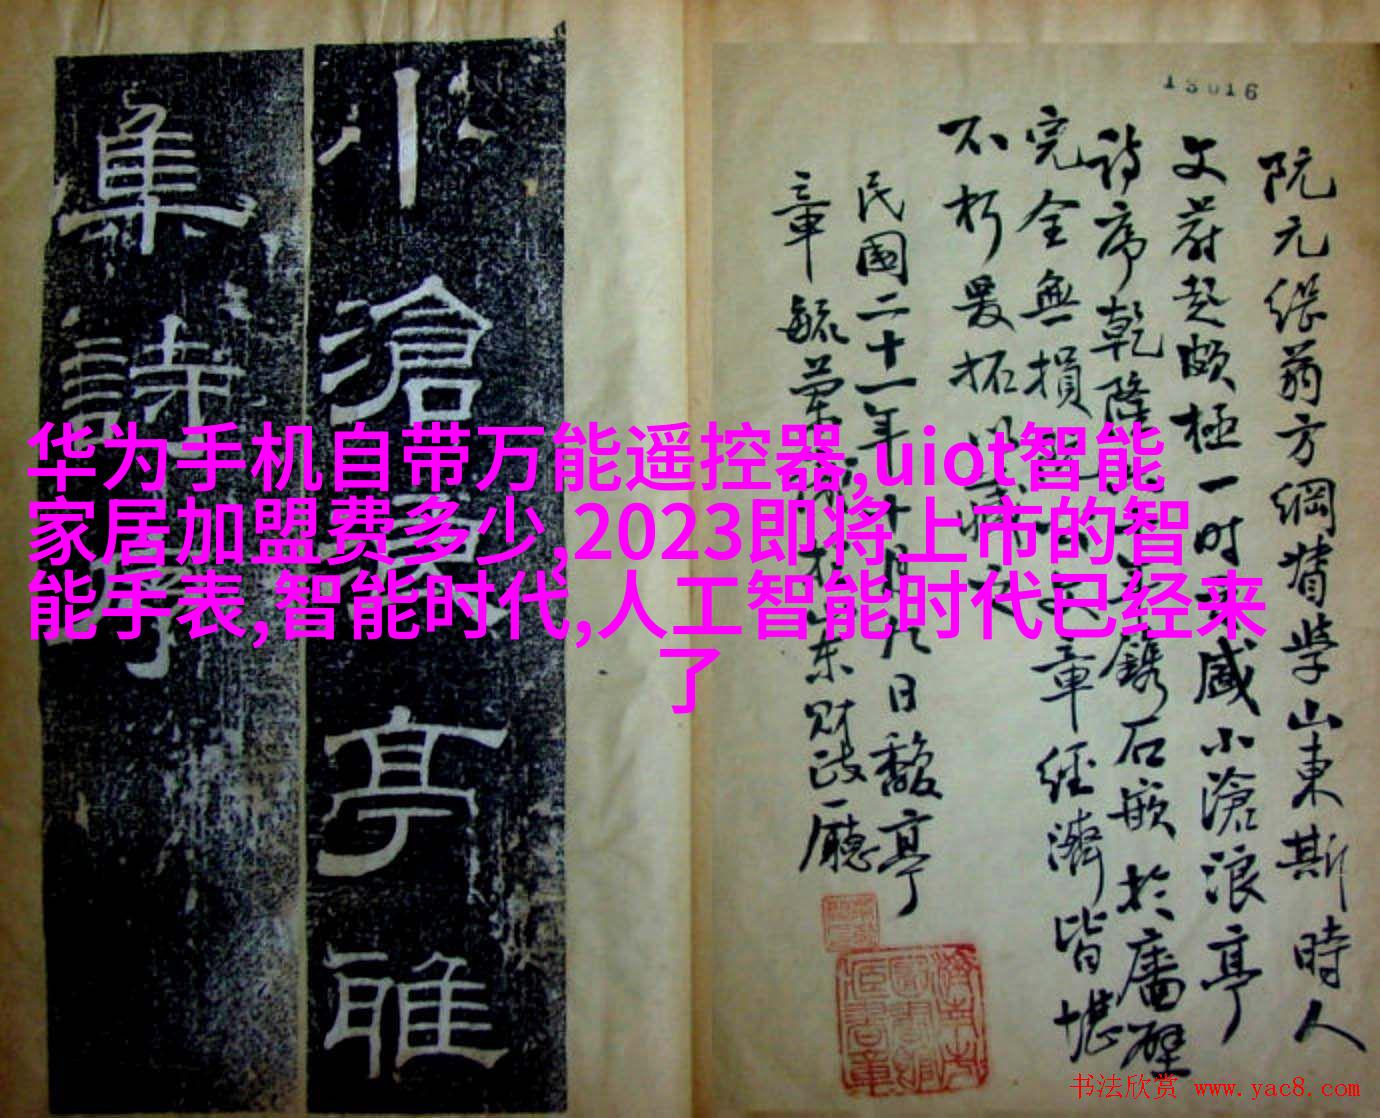 华为手机自带万能遥控器,uiot智能
家居加盟费多少,2023即将上市的智
能手表,智能时代,人工智能时代已经来
了
13016
阮元继翁方綱督学山東斯時人
文蔚起頗極一时之盛小滄浪亭
詩序乾隆
鐫石嵌於廡壁
完全無損
章經濟皆堪
不朽爰拓以
民國二十一年
九日馥亭
章毓蘭
東财政廳
小滄浪亭雅
集詩序
书法欣赏 www.yac8.com